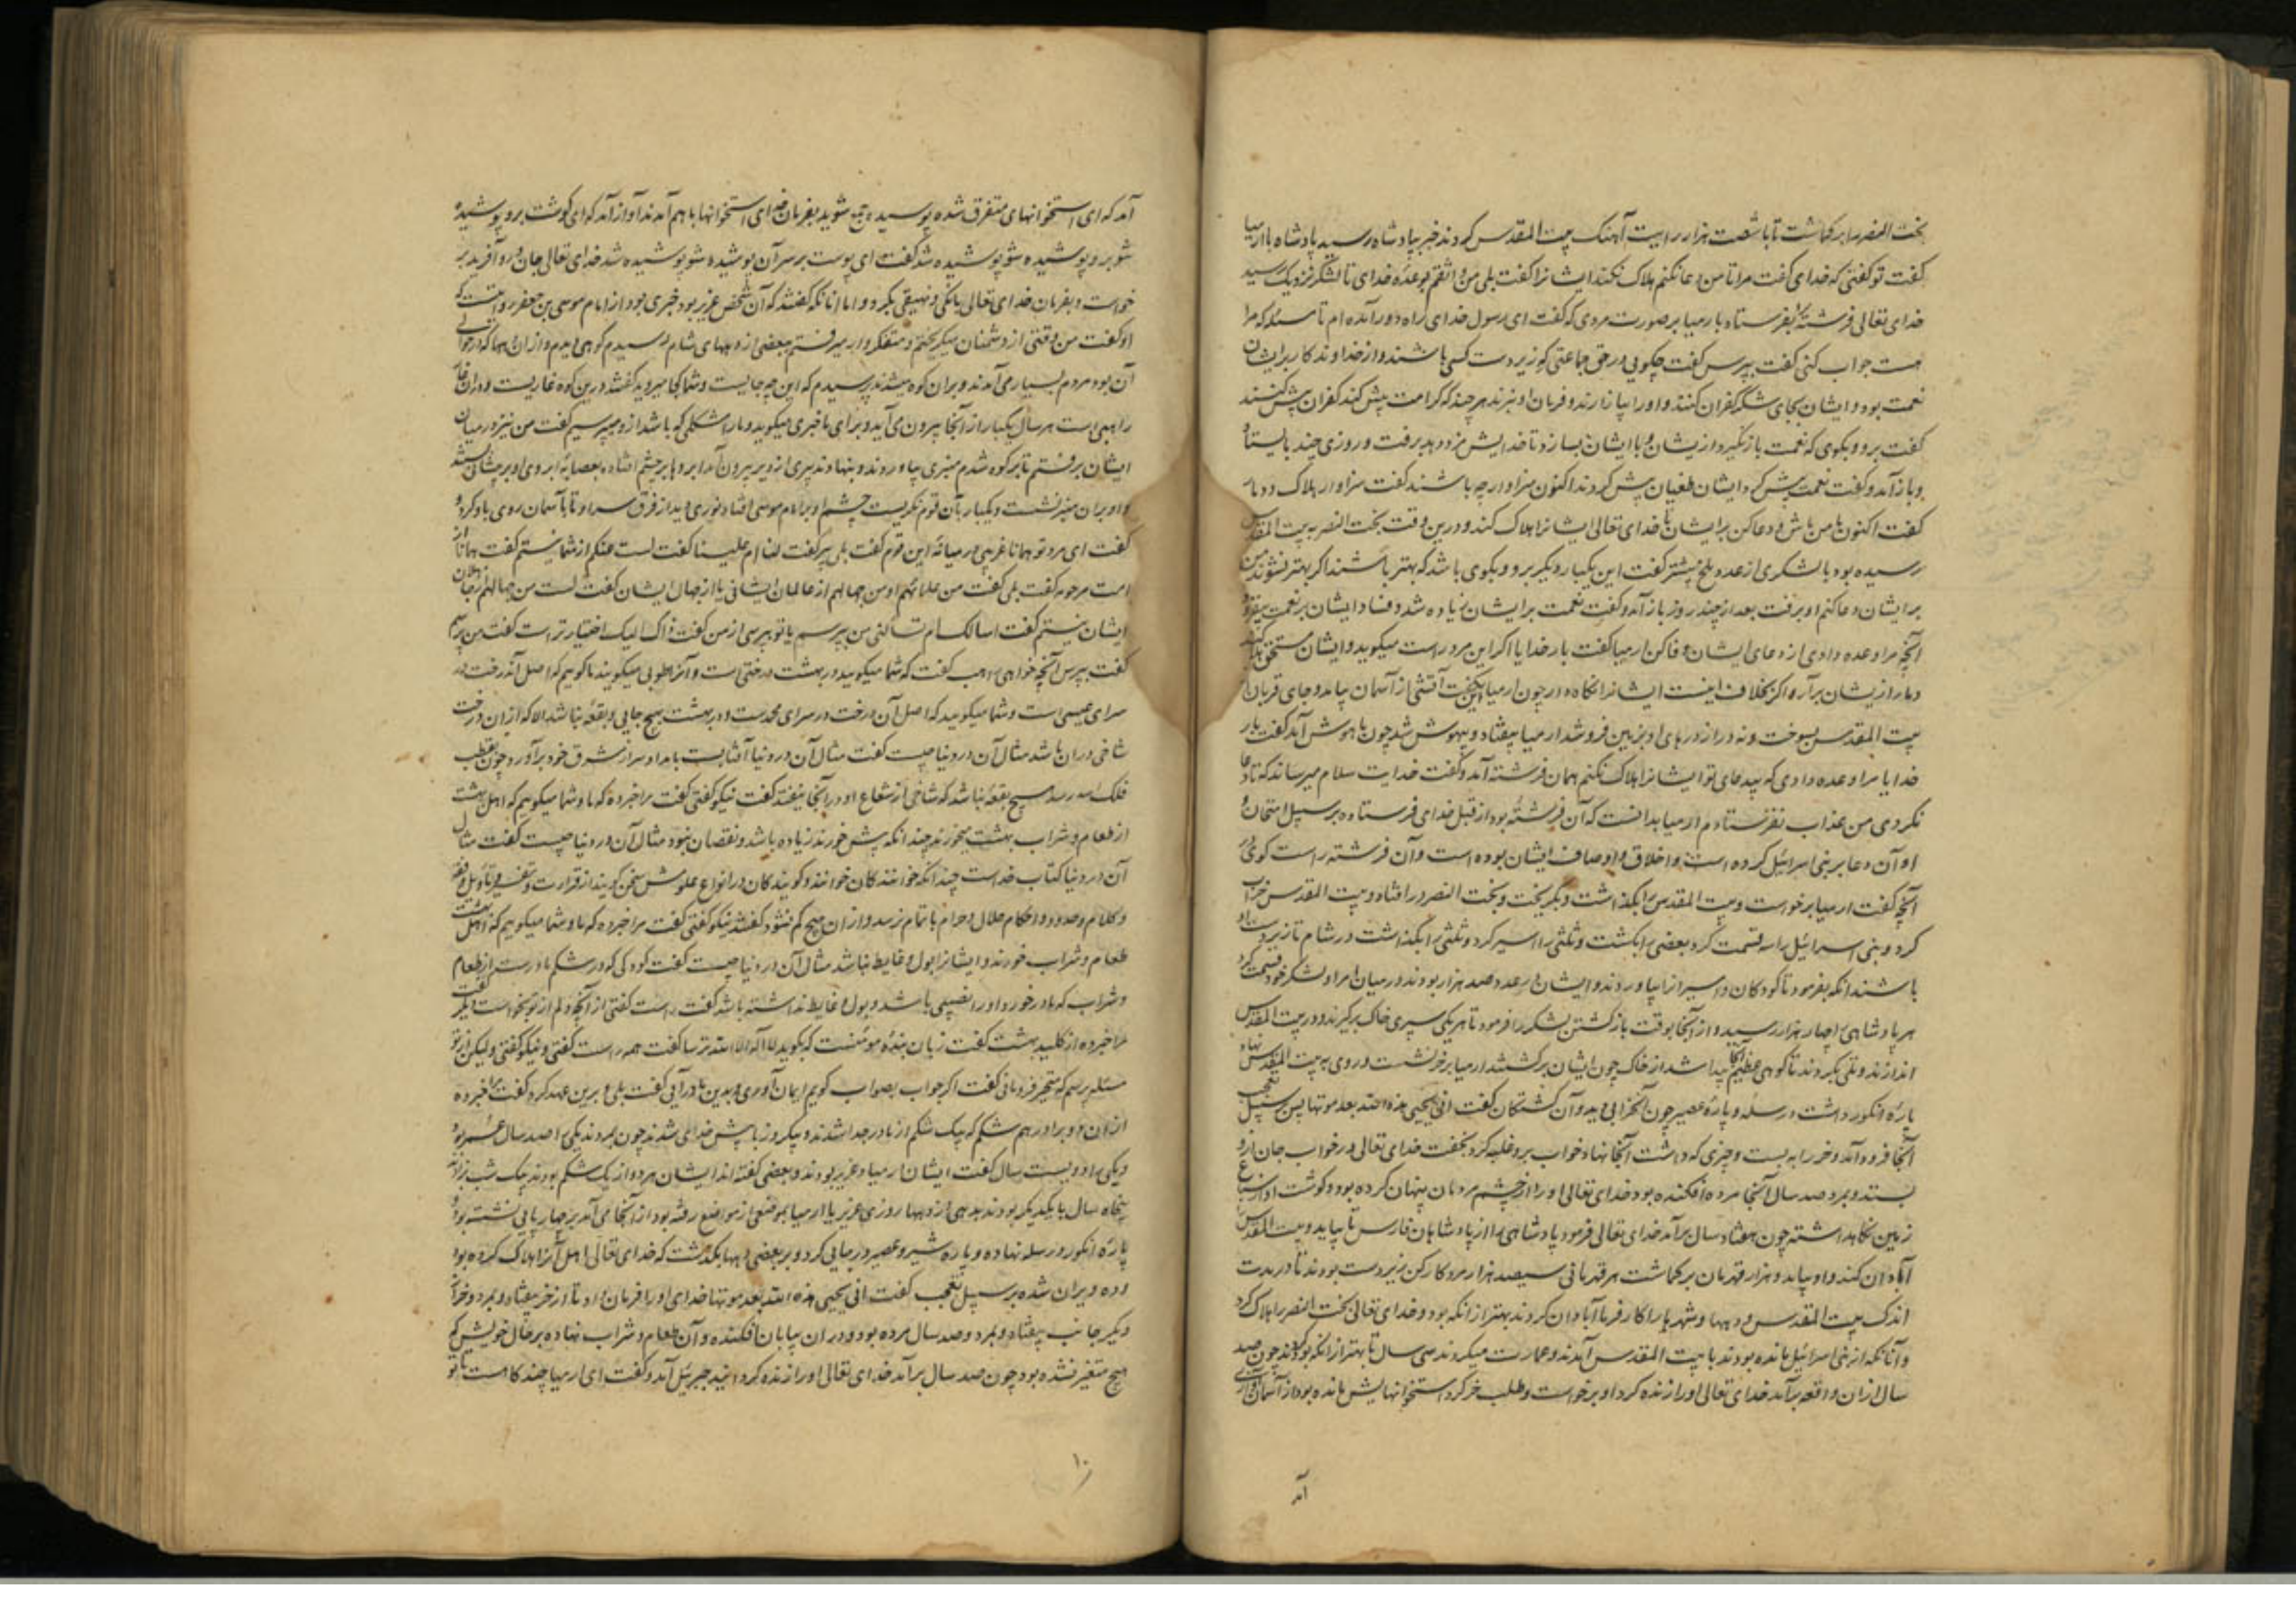 بخت النصر را برکماشت تا با شصت هزار رایت آهنک بیت المقدس کردند خبر بپادشاه رسید پادشاه با ارمیا
کفت تو کفتی که خدای کفت مرا تا من دعا نکنم هلاک نکنم ایشانرا کفت بلی من واثقم بوعدهٔ خدای تا لشکر نزدیک رسید
خدای تعالی فرشتهٔ را بفرستاد بارمیا بر صورت مردی که کفت ای رسول خدای از راه دور آمده ام تا مسئله که مرا
هست جواب کنی کفت بپرس کفت چکویی در حق جماعتی که زیر دست کسی باشند و از خداوند کار بر ایشان
نعمت بود و ایشان بجای شکر کفران کنند و او را بیازارند و فرمان او نبرند هر چند که کرامت بیش کند کفران بیش کنند
کفت برو و بکوی که نعمت باز نکیرد از یشان و با ایشان بسازد تا خدایش مزد دهد برفت و روزی چند بایستاد
و باز آمد و کفت نعمت بیش کرد و ایشان طغیان بیش کردند اکنون سزاوار چه باشند کفت سزاوار هلاک و دمار
کفت اکنون با من باش و دعا کن بر ایشان تا خدای تعالی ایشانرا هلاک کند و درین وقت بخت النصر به بیت المقدس
رسیده بود با لشکری از عدد ملخ بیشتر کفت این یکبار دیکر برو و بکوی باشد که بهتر باشند اکر بهتر نشوند من
بر ایشان دعا کنم او برفت بعد از چند روز باز آمد و کفت نعمت بر ایشان زیاده شد و فساد ایشان بر نعمت بیفزود
آنچه مرا وعده دادی از دعای ایشان وفا کن ارمیا کفت بار خدایا اکر این مرد راست میکوید و ایشان مستحق هلاکند
دمار از یشان بر آر و اکر بخلاف اینست ایشانرا نکاه دار چون ارمیا این بکفت آتشی از آسمان بیامد و جای قربان از
بیت المقدس بسوخت و نه در از درهای او بزمین فرو شد ارمیا بیفتاد و بیهوش شد چون با هوش آمد کفت بار
خدایا مرا وعده دادی که بی دعای تو ایشانرا هلاک نکنم همان فرشته آمد و کفت خدایت سلام میرساند که تا دعا
نکردی من عذاب نفرستادم ارمیا بدانست که آن فرشته بود از قبل خدای فرستاده بر سبیل امتحان و
او آن دعا بر بنی اسرائیل کرده است و اخلاق و اوصاف ایشان بوده است و آن فرشته راست کوی
آنچه کفت ارمیا برخواست و بیت المقدس را بکذاشت و بکریخت و بخت النصر در افتاد و بیت المقدس خراب
کرد و بنی اسرائیل را سه قسمت کرد بعضی را بکشت و ثلثی را اسیر کرد و ثلثی را بکذاشت در شام تا زیر دست او
باشند آنکه بفرمود تا کودکان و اسیرانرا بیاوردند و ایشان در عدد صد هزار بودند در میان امرا و لشکر خود قسمت کرد
هر پادشاهی را چهار هزار رسید و از آنجا بوقت باز کشتن لشکر را فرمود تا هر یکی سپری خاک برکیرند و در بیت المقدس
اندازند و تلی بکردند تا کوهی عظیم آنجا پیدا شد از خاک چون ایشان برکشتند ارمیا بر خر نشست و روی به بیت المقدس نهاد
پارهٔ انکور داشت در سله و پارهٔ عصیر چون آن خرابی دید و آن کشتکان کفت انی یحیی هذه الله بعد موتها پس بر سبیل تعجب
آنجا فرود آمد و خر را به بست و چیزی که داشت آنجا نهاد خواب برو غلبه کرد بخفت خدای تعالی در خواب جان ازو
بستد و بمرد صد سال آنجا مرده افکنده بود خدای تعالی او را از چشم مردمان پنهان کرده بود و کوشت او از سباع
زمین نکاه داشته چون هفتاد سال بر آمد خدای تعالی فرمود پادشاهی را از پادشاهان فارس تا بیاید و بیت المقدس
آبادان کند و او بیامد و هزار قهرمان برکماشت هر قهرمانی سیصد هزار مرد کارکن زیر دست بودند تا در مدت
اندک بیت المقدس و دیهها و شهرها را کارفرما آبادان کردند بهتر از آنکه بود و خدای تعالی بخت النصر را هلاک کرد
و آنانکه از بنی اسرائیل مانده بودند با بیت المقدس آمدند و عمارت میکردند سی سال تا بهتر از آنکه بود کردند چون صد
سال از ان واقعه بر آمد خدای تعالی او را زنده کرد او برخواست و طلب خر کرد استخوانهایش مانده بود از آسمان آوازی
آمد
آمد که ای استخوانهای متفرق شده پوسیده جمع شوید بفرمان خدای استخوانها با هم آمدند آواز آمد که ای کوشت برو پوشیده
شو برو پوشیده شو پوشیده شد کفت ای پوست بر سر آن پوشیده شو پوشیده شد خدای تعالی جان درو آفرید بر
خواست و بفرمان خدای تعالی بانکی و نهیقی بکرد و اما آنانکه کفتند که آن شخص عزیر بود خبری بود از امام موسی بن جعفر روایتست که
او کفت من وقتی از دشمنان میکریختم و متفکر وار میرفتم ببعضی از دیههای شام رسیدم کوهی دیدم و از ان دیهها که در حوالی
آن بود مردم بسیار می آمدند و بران کوه میشدند پرسیدم که این چه جایست و شما کجا میروید کفتند درین کوه غاریست و در ان غار
راهبی است هر سال یکبار از آنجا بیرون می آید و برای ما خبری میکوید و مارا مشکلی که باشد ازو میپرسیم کفت من نیز در میان
ایشان برفتم تا بر کوه شدم منبری بیاوردند و بنهادند پیری از دیر بیرون آمد ابروها بر چشم افتاده بعصابهٔ ابروی او بر پیشانی بستند
و او بران منبر نشست و یکبار بآن قوم نکریست چشم او بر امام موسی افتاد نوری دید از فرق سر او تا بآسمان روی باو کرد و
کفت ای مرد تو همانا غریبی در میانهٔ این قوم کفت بلی پیر کفت لنا ام علینا کفت لست منکم از شما نیستم کفت همانا از
امت مرحومه کفت بلی کفت من علمائهم او من جهالهم از عالمان ایشانی یا از جهال ایشان کفت لست من جهالهم از جاهلان
ایشان نیستم کفت اسالک ام تسألنی من بپرسم یا تو بپرسی از من کفت ذاک الیک اختیار تراست کفت من پرسم
کفت بپرس آنچه خواهی راهب کفت که شما میکویید در بهشت درختی است و آنرا طوبی میکویند ما کوییم که اصل آن درخت در
سرای عیسی است و شما میکویید که اصل آن درخت در سرای محمدست و در بهشت هیچ جایی و بقعهٔ نباشد الا که از ان درخت
شاخی در ان باشد مثال آن در دنیا چیست کفت مثال آن در دنیا آفتابست بامداد سر از مشرق خود برآورد چون بقطب
فلک رسد هیچ بقعهٔ نباشد که شاخی از شعاع او در آنجا نیفتد کفت نیکو کفتی کفت مرا خبر ده که ما و شما میکوییم که اهل بهشت
از طعام و شراب بهشت میخورند چندانکه بیش خورند زیاده باشد و نقصان نبود مثال آن در دنیا چیست کفت مثال
آن در دنیا کتاب خداست چندانکه خوانندکان خوانند و کویندکان در انواع علومش سخن کویند از قرائت و تفسیر و تأویل و فقه
و کلام و حدود و احکام حلال و حرام با تمام نرسد و از ان هیچ کم نشود کفتند نیکو کفتی کفت مرا خبر ده که ما و شما میکوییم که اهل بهشت
طعام و شراب خورند و ایشانرا بول و غایط نباشد مثال آن در دنیا چیست کفت کودکی که در شکم مادرست از طعام
و شراب که مادر خورد او را نصیبی باشد و بول و غایط نداشته باشد کفت راست کفتی از آنچه دلم از تو بخواست دیکر کفت
مرا خبر ده از کلید بهشت کفت زبان بندهٔ مؤمنست که بکوید لا اله الا الله ترسا کفت همه راست کفتی و نیکو کفتی ولیکن از تو
مسئله پرسم که متحیر فرو مانی کفت اکر جواب بصواب کویم ایمان آوری و بدین ما در آیی کفت بلی و برین عهد کرد کفت مرا خبر ده
از ان دو برادر هم شکم که بیک شکم از مادر جدا شدند و بیکروز با پیش خدای شدند چون بمردند یکی را صد سال عمر بود
و یکی را دویست سال کفت ایشان ارمیا و عزیر بودند و بعضی کفته اند ایشان هر دو از یک شکم بودند بیک شب زادند
پنجاه سال با یکدیکر بودند بدیهی از دیهها روزی عزیر یا ارمیا بموضعی از مواضع رفته بود از آنجا می آمد بر چهارپایی نشسته بود و
پارهٔ انکور در سله نهاده و پاره شیر و عصیر در جایی کرد و بر بعضی دیهها بکذشت که خدای تعالی اهل آنرا هلاک کرده بود
و ده ویران شده بر سبیل تعجب کفت انی یحیی هذه الله بعد موتها خدای او را فرمان داد تا از خر بیفتاد و بمرد و خر از
دیکر جانب بیفتاد و بمرد و صد سال مرده بود و در ان بیابان افکنده و آن طعام و شراب نهاده بر حال خویش که
هیچ متغیر نشده بود چون صد سال بر آمد خدای تعالی او را زنده کردانید جبرئیل آمد و کفت ای ارمیا چند کاهست تا تو